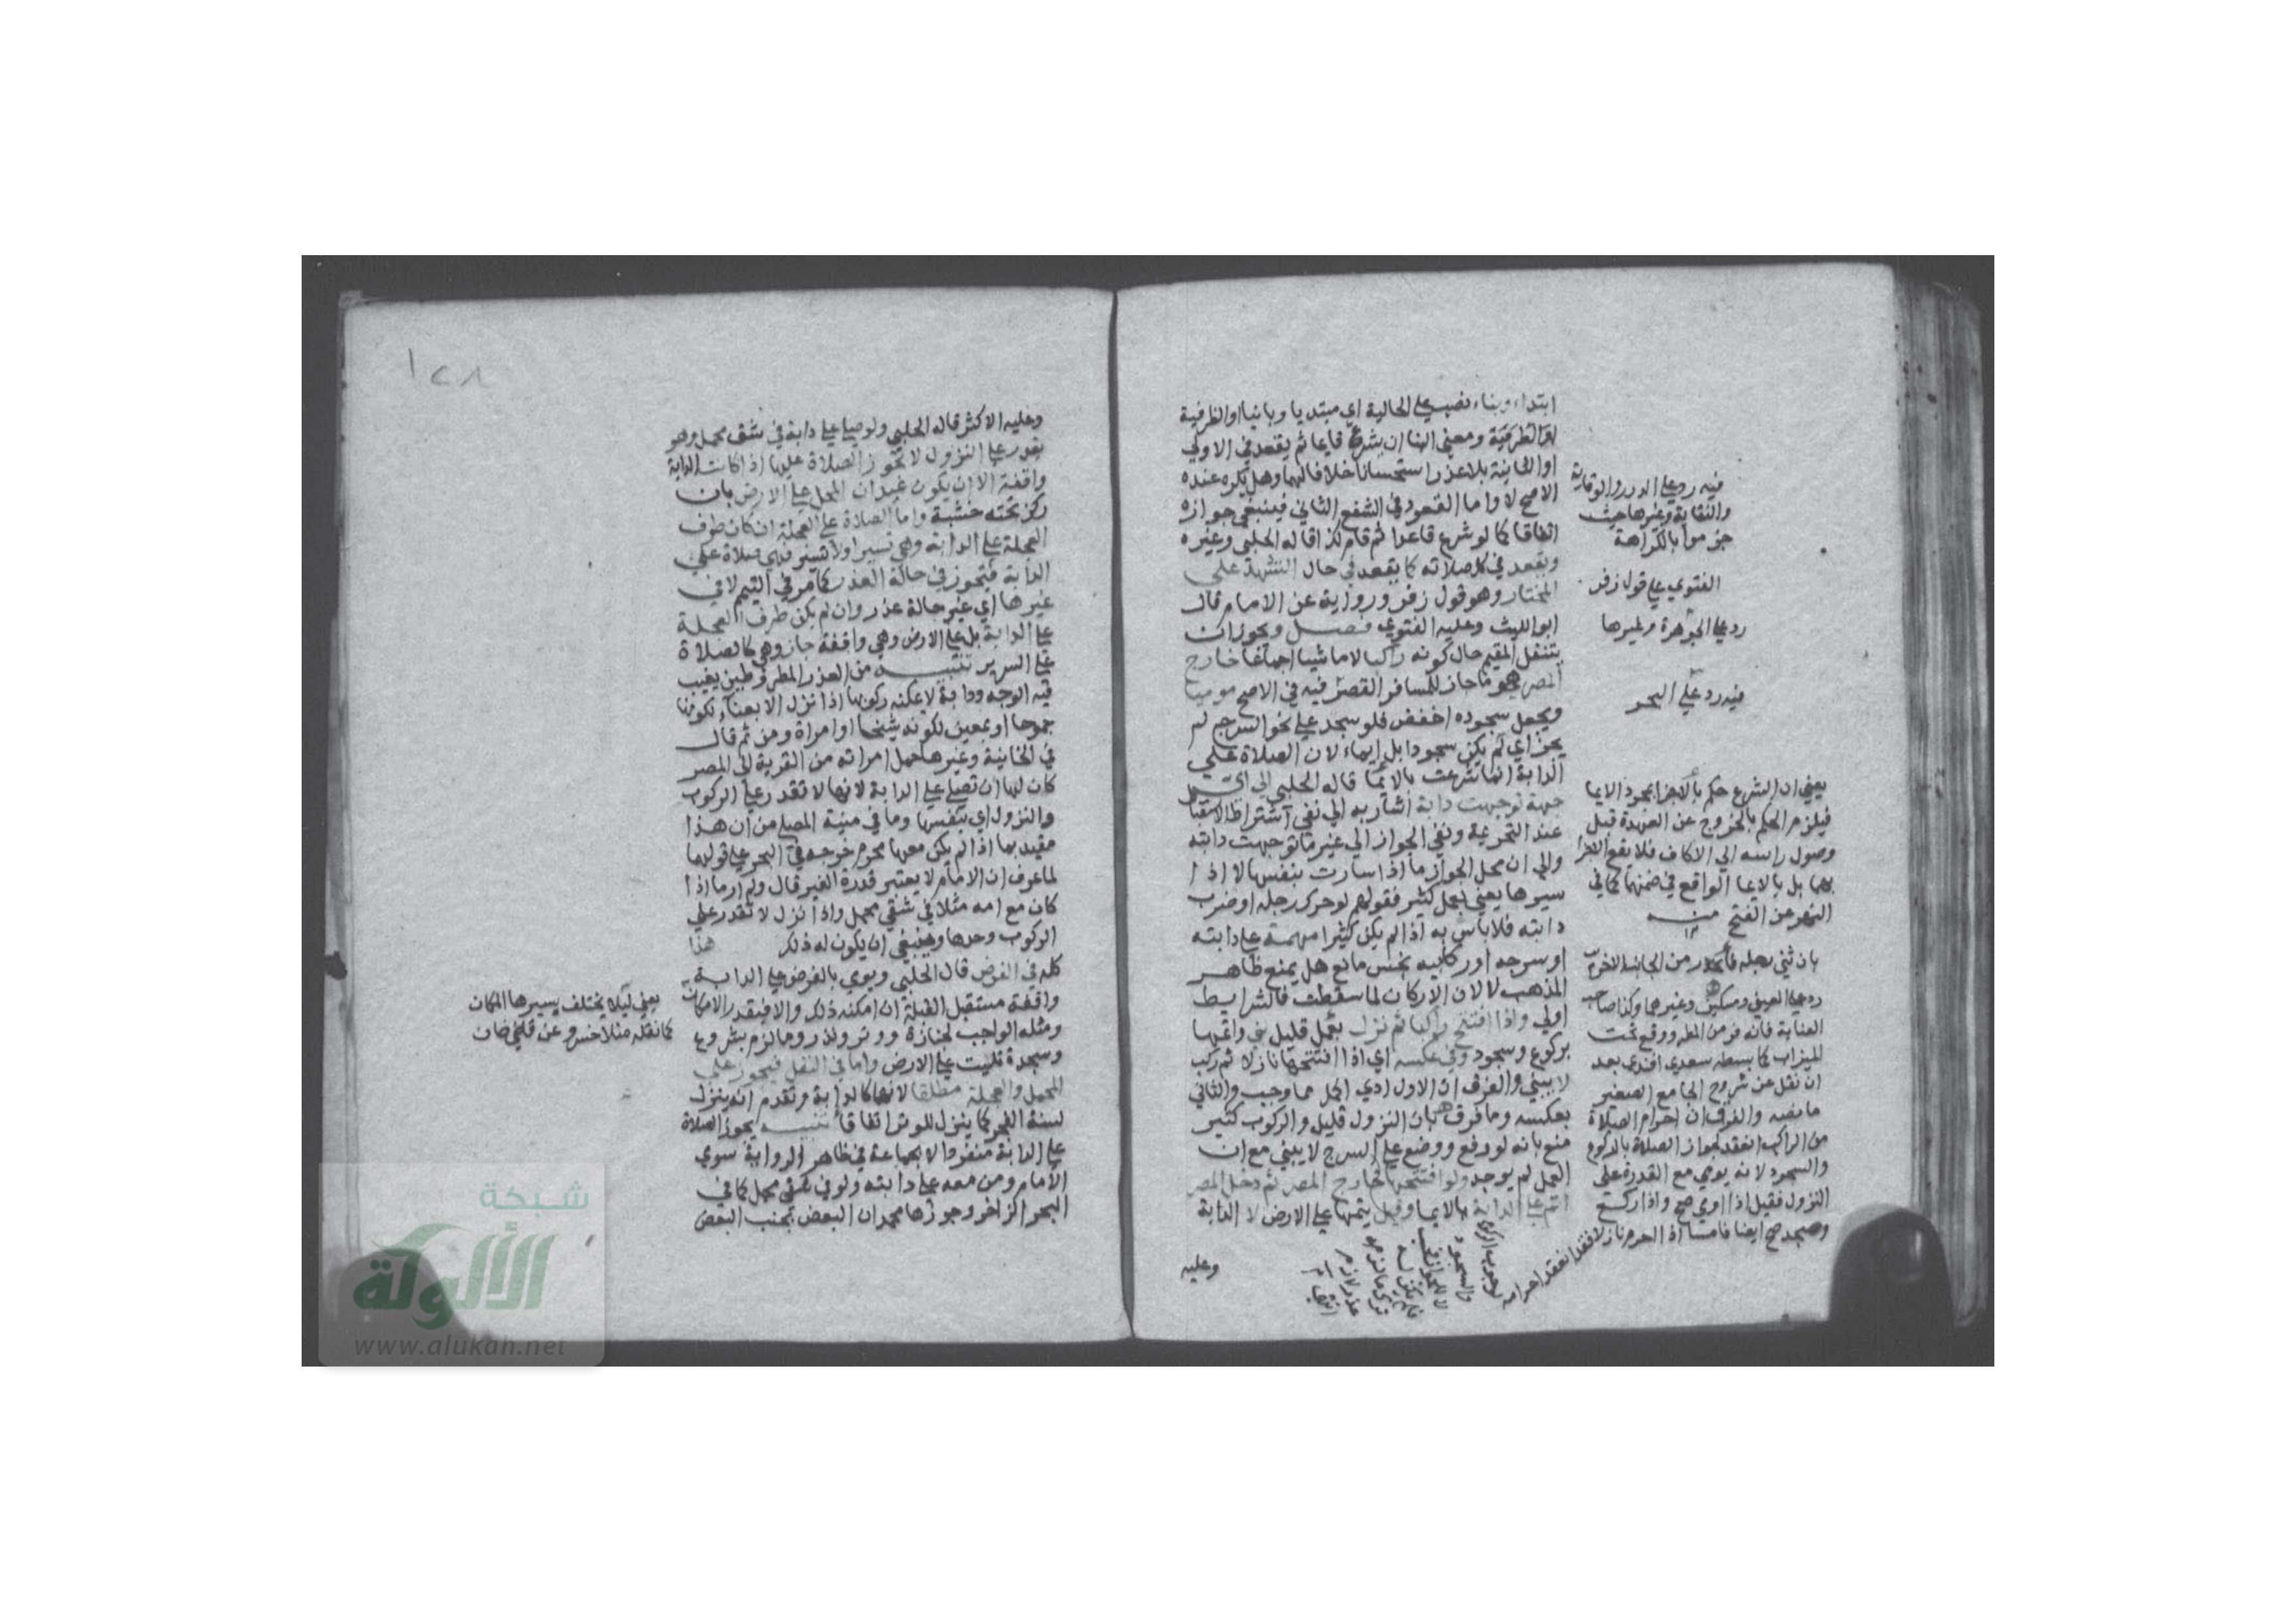 ابتداء وبناء نصب على الحالية اي مبتديا وبانيا او الظرفية
ومعنى البنا ان يشرع قايما ثم يقعد في الاولى
او الثانية بلا عذر استحسانا خلافا لهما وهل يكره عنده
الاصح لا واما القعود في الشفع الثاني فينبغي جوازه
اتفاقا كما لو شرع قاعدا ثم قام كذا قاله الحلبي وغيره
ويقعد في كل صلاته كما يقعد في حال التشهد على
المختار وهو قول زفر ورواية عن الامام قال
ابو الليث وعليه الفتوى فصل ويجوز ان
يتنفل المقيم حال كونه راكبا لا ماشيا اجماعا خارج
المصر هو ما جاز للمسافر القصر فيه في الاصح موميا
ويجعل سجوده اخفض فلو سجد على نحو السرج لم
يجز اي لم يكن سجودا بل ايماء لان الصلاة على
الدابة انما شرعت بالايما قاله الحلبي الى اي
جهة توجهت دابة اشار به الى نفي اشتراط الاستقبال
عند التحريمة ونفي الجواز الى غير ما توجهت دابته
والى ان محل الجواز ما اذا سارت بنفسها لا اذا
سيرها يعني بعمل كثير فقولهم لو حرك رجله او ضرب
دابته فلا باس به اذا لم يكن كثيرا مهمة على دابته
او سرجه او ركابيه نجس مانع هل يمنع ظاهر
المذهب لا لان الاركان لما سقطت فالشرايط
اولى واذا افتتح راكبا ثم نزل بعمل قليل بنى واتمها
بركوع وسجود وفي عكسه اي اذا افتتحها نازلا ثم ركب
لا يبني والفرق ان الاول ادى اكمل مما وجب والثاني
بعكسه وما فرق به بان النزول قليل والركوب كثير
منع بانه لو رفع ووضع على السرج لا يبني مع ان
العمل لم يوجد ولو افتتحها خارج المصر ثم دخل المصر
اتم على الدابة بالايما وقيل يتمها على الارض لا الدابة
وعليه
فيه رد على الدرر والوقاية
والنقاية وغيرها حيث
جزموا بالكراهة
الفتوى على قول زفر
رد على الجوهرة وغيرها
فيه رد على البحر
يعني ان الشرع حكم بالاجزا بمجرد الايما
فيلزم الحكم بالخروج عن العهدة قبل
وصول راسه الى الاكاف فلا يقع الاجزا
بهما بل بالايما الواقع في ضمنهما كما في
النهر عن الفتح منه
بان ثنى رجله فانحدر من الجانب الاخر
رد على العيني ومسكين وغيرهما وكذا صاحب
العناية فانه فر من المطر ووقع تحت
الميزاب كما بسطه سعدي افندي بعد
ان نقل عن شروح الجامع الصغير
ما نصه والفرق ان احرام الصلاة
من الراكب انعقد لجواز الصلاة بالركوع
والسجود لانه يومي مع القدرة على
النزول فقيل اذا اومى صح واذا ركع
وسجد صح ايضا فاما اذا احرم نازلا فقد انعقد احرامه
لوجوب الركوع
والسجود
وعليه الاكثر قاله الحلبي ولو صلى على دابة في شق محمل وهو
يقدر على النزول لا تجوز الصلاة عليها اذا كانت الدابة
واقفة الا ان يكون عيدان المحمل على الارض بان
ركز تحته خشبة واما الصلاة على العجلة ان كان طرف
العجلة على الدابة وهي تسير اولا تسير فهي صلاة على
الدابة فتجوز في حالة العذر كما مر في التيمم لا في
غيرها اي غير حالة عذر وان لم يكن طرف العجلة
على الدابة بل على الارض وهي واقفة جاز وهي كالصلاة
على السرير تنبيه من العذر المطر وطين يغيب
فيه الوجه ودابة لا يمكنه ركوبها اذا نزل الا بعناء لكونها
جموحا او بمعين لكونه شيخا او امراة ومن ثم قال
في الخانية وغيرها حمل امراته من القرية الى المصر
كان لها ان تصلي على الدابة لانها لا تقدر على الركوب
والنزول اي بنفسها وما في منية المصلي من ان هذا
مقيد بما اذا لم يكن معها محرم خرجه في البحر على قولهما
لما عرف ان الامام لا يعتبر قدرة الغير قال ولم ار ما اذا
كان مع امه مثلا في شقي محمل واذا نزل لا تقدر على
الركوب وحدها وينبغي ان يكون له ذلك هذا
كله في الفرض قال الحلبي ويومي بالفرض على الدابة
واقفة مستقبل القبلة ان امكنه ذلك والا فبقدر الامكان
ومثله الواجب لجنازة ووتر ونذر وما لزم بشروع
وسجدة تليت على الارض واما في النفل فيجوز على
المحمل والعجلة مطلقا لانها كالدابة وتقدم انه ينزل
لسنة الفجر كما ينزل للوتر اتفاقا تنبيه يجوز الصلاة
على الدابة منفردا لا بجماعة في ظاهر الرواية سوى
الامام ومن معه على دابته ولو في شقي محمل كما في
البحر الزاخر وجوزها محمد ان البعض بجنب البعض
يعني ليلا يختلف بسيرها المكان
كما نقله منلا خسرو عن قاضيخان
١٢٨
شبكة
الألوكة
www.alukah.net